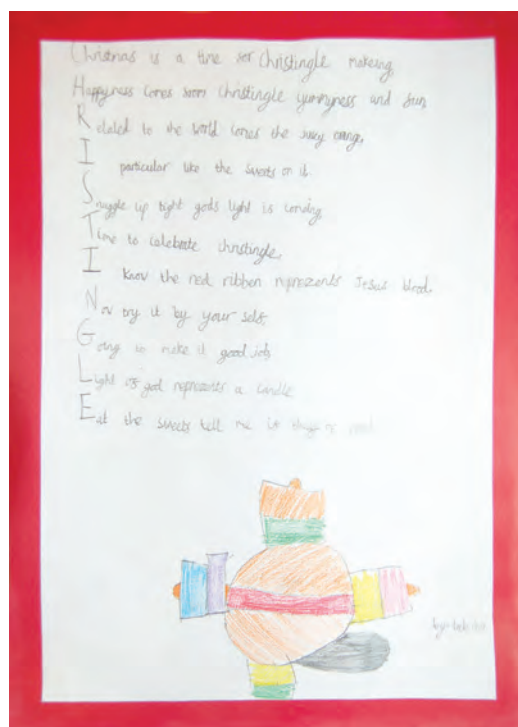 Christmas is a time for Christingle makeing
Happyness comes from Christingle yummyness and fun
Related to the world comes the juicy orange,
I particular like the sweets on it.
Snuggle up tight gods light is coming
Time to celebrate christingle,
I know the red ribbon reprezents Jesus blood.
Now try it by your self,
Going to make it good job
Light of god reprezents a candle
Eat the sweets tell me if they're
by